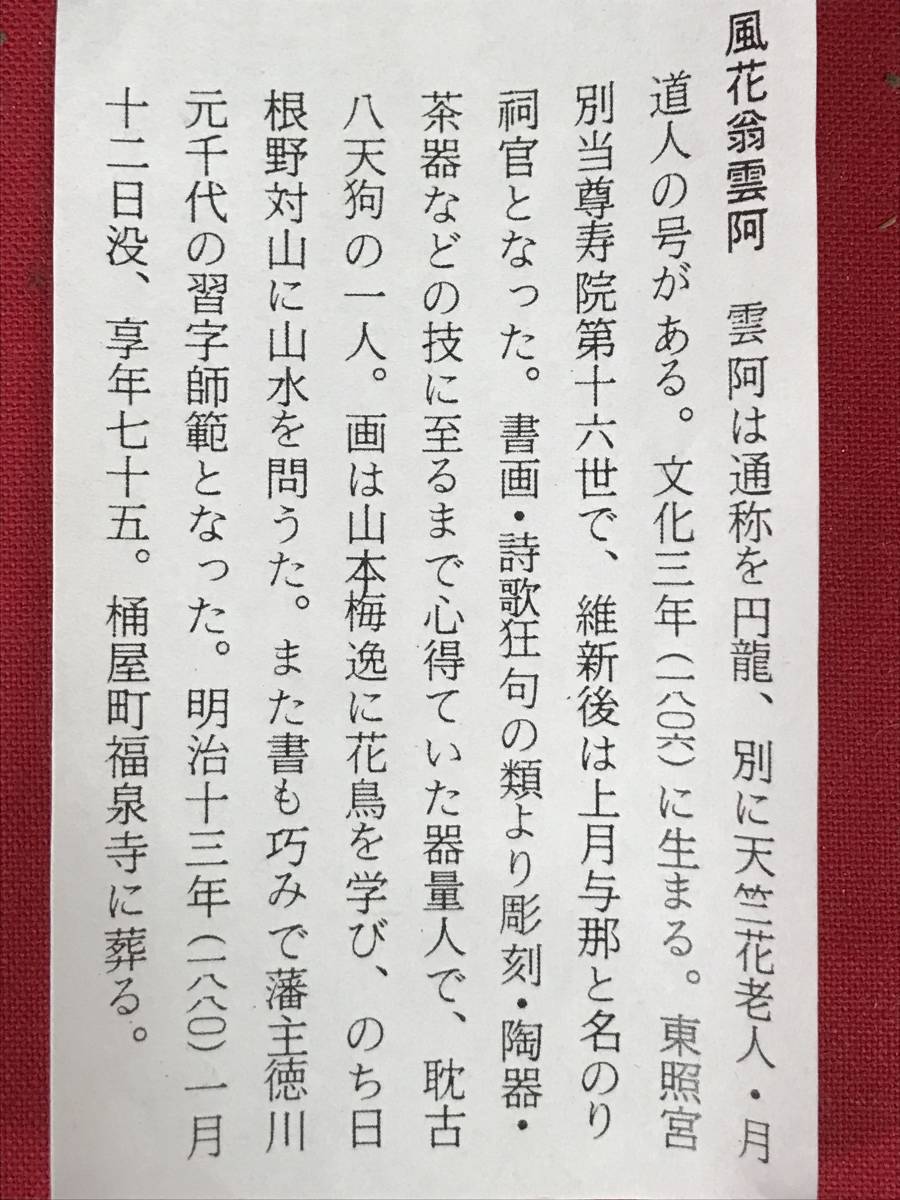 風花翁雲阿　雲阿は通称を円龍、別に天竺花老人・月
道人の号がある。文化三年（一八〇六）に生まる。東照宮
別当尊寿院第十六世で、維新後は上月与那と名のり
祠官となった。書画・詩歌狂句の類より彫刻・陶器・
茶器などの技に至るまで心得ていた器量人で、耽古
八天狗の一人。画は山本梅逸に花鳥を学び、のち日
根野対山に山水を問うた。また書も巧みで藩主徳川
元千代の習字師範となった。明治十三年（一八八〇）一月
十二日没、享年七十五。桶屋町福泉寺に葬る。